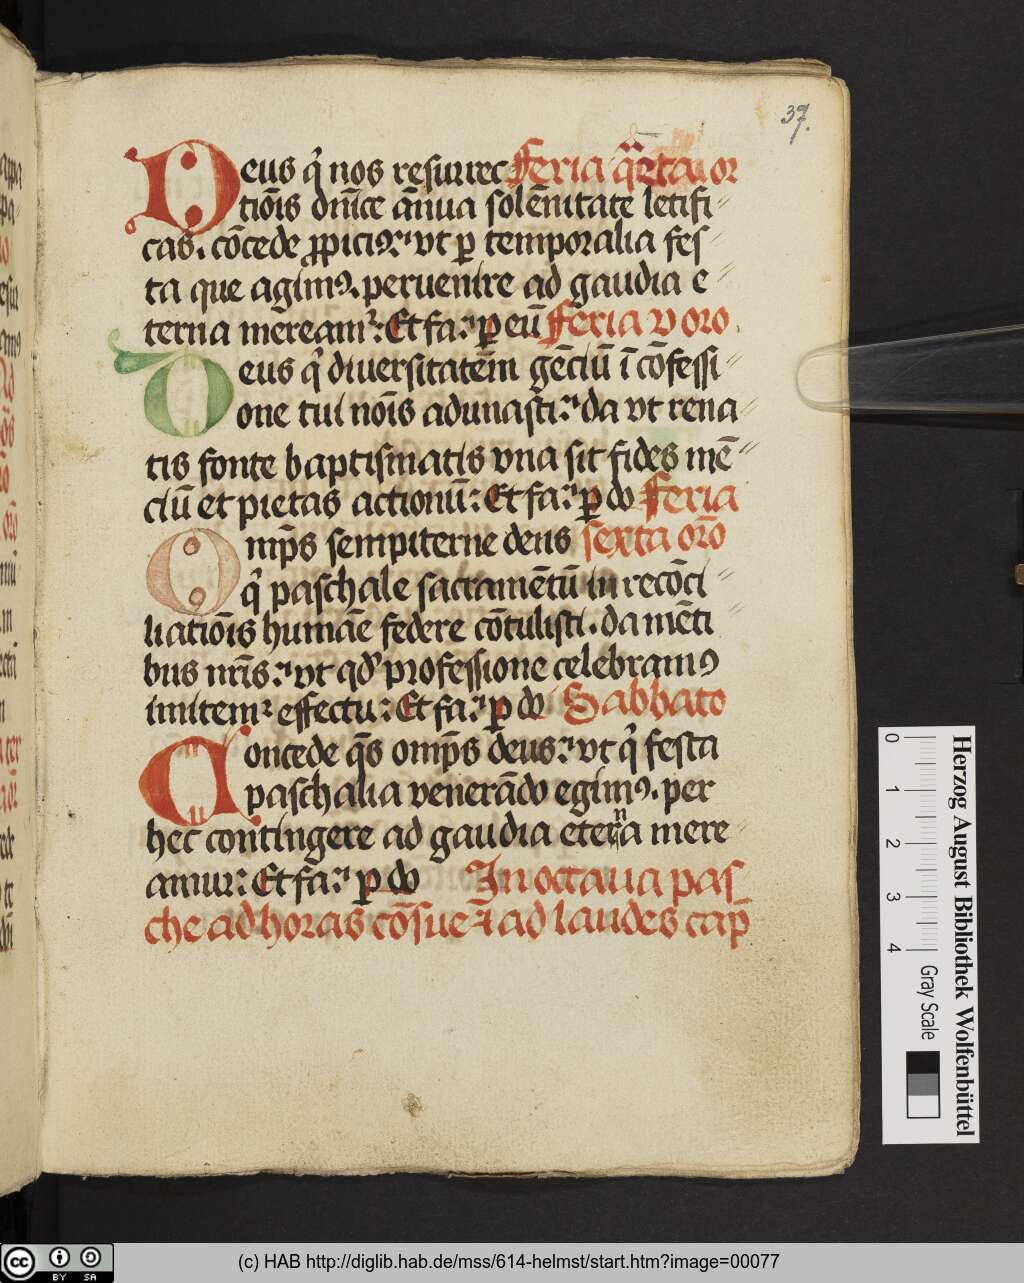 37.
Deus qͥ nos resurrec Feria q̈rta or
tiōis dn̄ice ān̄ua solēnitate letifi
cas. cōcede ꝓpiciꝰ vt ꝑ temporalia fes
ta que agimꝰ. peruenire ad gaudia e
terna mēreamr: Et fa: ꝑ eū Feria v oro
Deus qͥ diuersitatēm gēciū ī cōfessi
one tui noīs adunasti: da vt rena
tis fonte baptismatis vna sit fides mē
ciū et pietas actionū: Et fa: ꝑ do Feria
Omp̄s sempiterne deus sexta orō
qͥ paschale sacramētū in recōci
liatiōis humāe federe cōtulisti. da mēti
bus nr̄is: vt qd̓ professione celebramꝰ
imitemr effectu: Et fa: ꝑ do Sabbato
Concede q̄s omp̄s deus: vt qͥ festa
paschalia venerādo egimꝰ. per
hec contingere ad gaudia eterna mere
amur: Et fa: ꝑ do In octaua pas
che ad horas cōsue ad laudes cap̄
0 1 2 3 4
Gray Scale
Herzog August Bibliothek Wolfenbüttel
cc BY SA
(c) HAB http://diglib.hab.de/mss/614-helmst/start.htm?image=00077